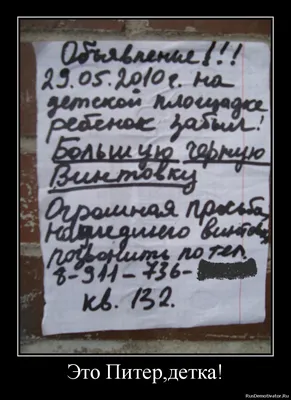 Объявление!!!
29.05.2010г. на
детской площадке
ребенок забыл!
Большую черную
Винтовку
Огромная просьба
нашедшего винтовку
позвонить по тел.
8-911-736-
кв. 132.
Это Питер,детка!
RusDemotivator.Ru